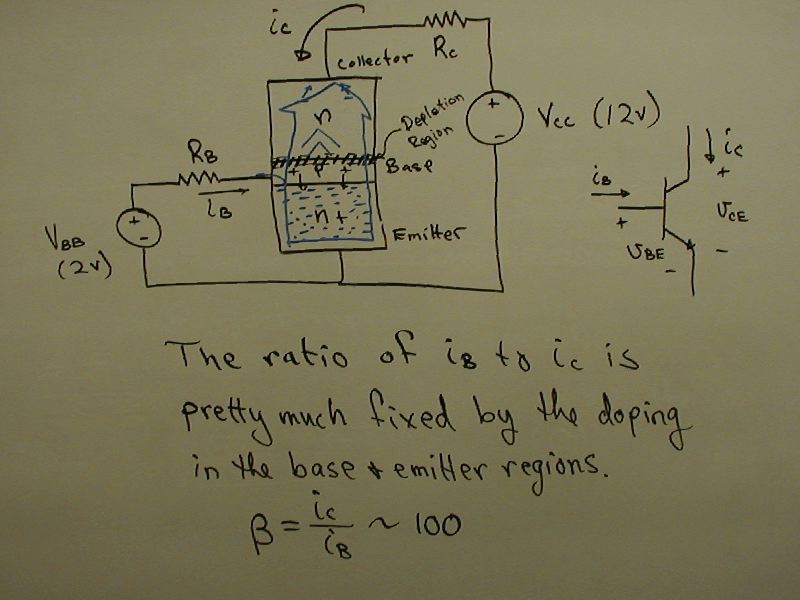 ic
Rc
Collector
n
Depletion
Region
Vcc (12v)
RB
+ P +
Base
iB
n+
Emitter
VBB
(2v)
+
-
+
-
iB
+
ic
+
VCE
-
VBE
-
The ratio of iB to ic is
pretty much fixed by the doping
in the base & emitter regions.
β = ic/iB ~ 100